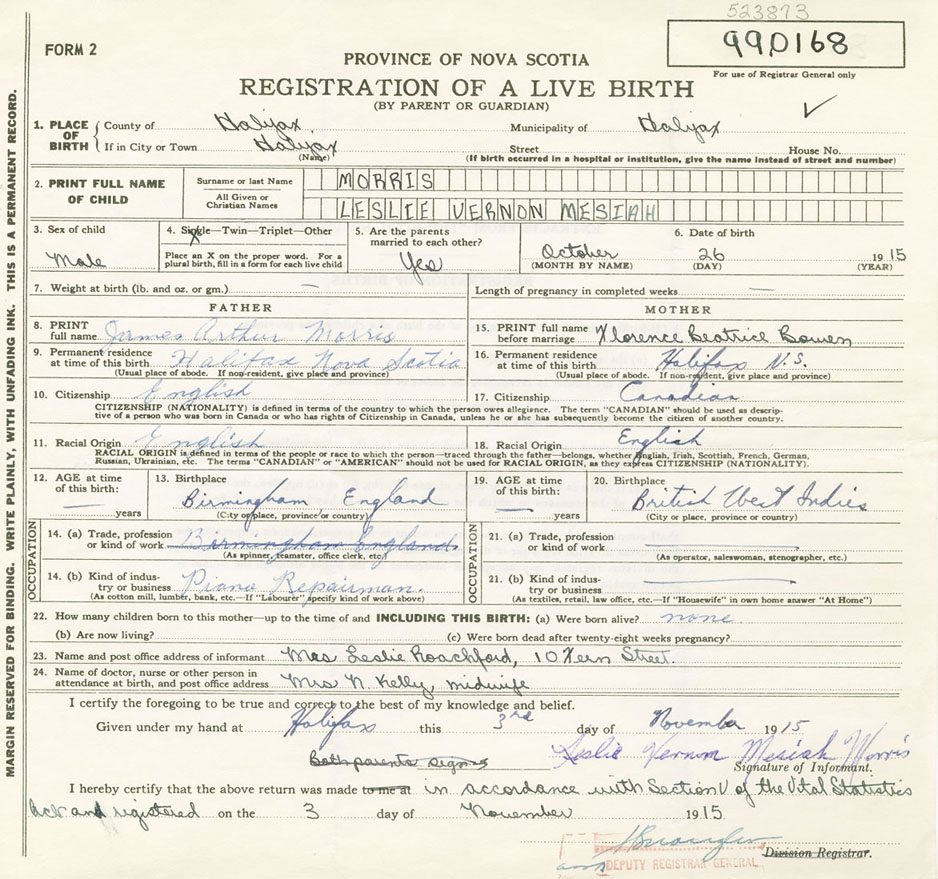 523873
FORM 2
990168
PROVINCE OF NOVA SCOTIA
For use of Registrar General only
REGISTRATION OF A LIVE BIRTH
(BY PARENT OR GUARDIAN)
MARGIN RESERVED FOR BINDING. WRITE PLAINLY, WITH UNFADING INK. THIS IS A PERMANENT RECORD.
1. PLACE OF BIRTH
County of Halifax. Municipality of Halifax
If in City or Town Halifax Street House No.
(Name) (If birth occurred in a hospital or institution, give the name instead of street and number)
2. PRINT FULL NAME OF CHILD
Surname or last Name MORRIS
All Given or Christian Names LESLIE VERNON MESIAH
3. Sex of child
Male
4. Single—Twin—Triplet—Other
X
Place an X on the proper word. For a plural birth, fill in a form for each live child
5. Are the parents married to each other?
Yes
6. Date of birth
October 26 1915
(MONTH BY NAME) (DAY) (YEAR)
7. Weight at birth (lb. and oz. or gm.) — Length of pregnancy in completed weeks —
FATHER
8. PRINT full name James Arthur Morris
9. Permanent residence at time of this birth Halifax Nova Scotia
(Usual place of abode. If non-resident, give place and province)
10. Citizenship English
MOTHER
15. PRINT full name before marriage Florence Beatrice Bowen
16. Permanent residence at time of this birth Halifax N.S.
(Usual place of abode. If non-resident, give place and province)
17. Citizenship Canadian
CITIZENSHIP (NATIONALITY) is defined in terms of the country to which the person owes allegiance. The term "CANADIAN" should be used as descrip-
tive of a person who was born in Canada or who has rights of Citizenship in Canada, unless he or she has subsequently become the citizen of another country.
11. Racial Origin English 18. Racial Origin English
RACIAL ORIGIN is defined in terms of the people or race to which the person—traced through the father—belongs, whether English, Irish, Scottish, French, German,
Russian, Ukrainian, etc. The terms "CANADIAN" or "AMERICAN" should not be used for RACIAL ORIGIN, as they express CITIZENSHIP (NATIONALITY).
12. AGE at time of this birth:
— years
13. Birthplace
Birmingham, England
(City or place, province or country)
19. AGE at time of this birth:
— years
20. Birthplace
British West Indies
(City or place, province or country)
OCCUPATION
14. (a) Trade, profession or kind of work Birmingham England
(As spinner, teamster, office clerk, etc.)
14. (b) Kind of indus-
try or business Piano Repairman.
(As cotton mill, lumber, bank, etc.—If "Labourer" specify kind of work above)
OCCUPATION
21. (a) Trade, profession or kind of work —
(As operator, saleswoman, stenographer, etc.)
21. (b) Kind of indus-
try or business —
(As textiles, retail, law office, etc.—If "Housewife" in own home answer "At Home")
22. How many children born to this mother—up to the time of and INCLUDING THIS BIRTH: (a) Were born alive? none
(b) Are now living? (c) Were born dead after twenty-eight weeks pregnancy?
23. Name and post office address of informant Mrs Leslie Roachford, 10 Kern Street.
24. Name of doctor, nurse or other person in
attendance at birth, and post office address Mrs N. Kelly, midwife
I certify the foregoing to be true and correct to the best of my knowledge and belief.
Given under my hand at Halifax this 3rd day of November 1915
Both parents signs Leslie Vernon Mesiah Morris
Signature of Informant.
I hereby certify that the above return was made to me at in accordance with Section V of the Vital Statistics
Act and registered on the 3 day of November 1915
Division Registrar.
DEPUTY REGISTRAR GENERAL